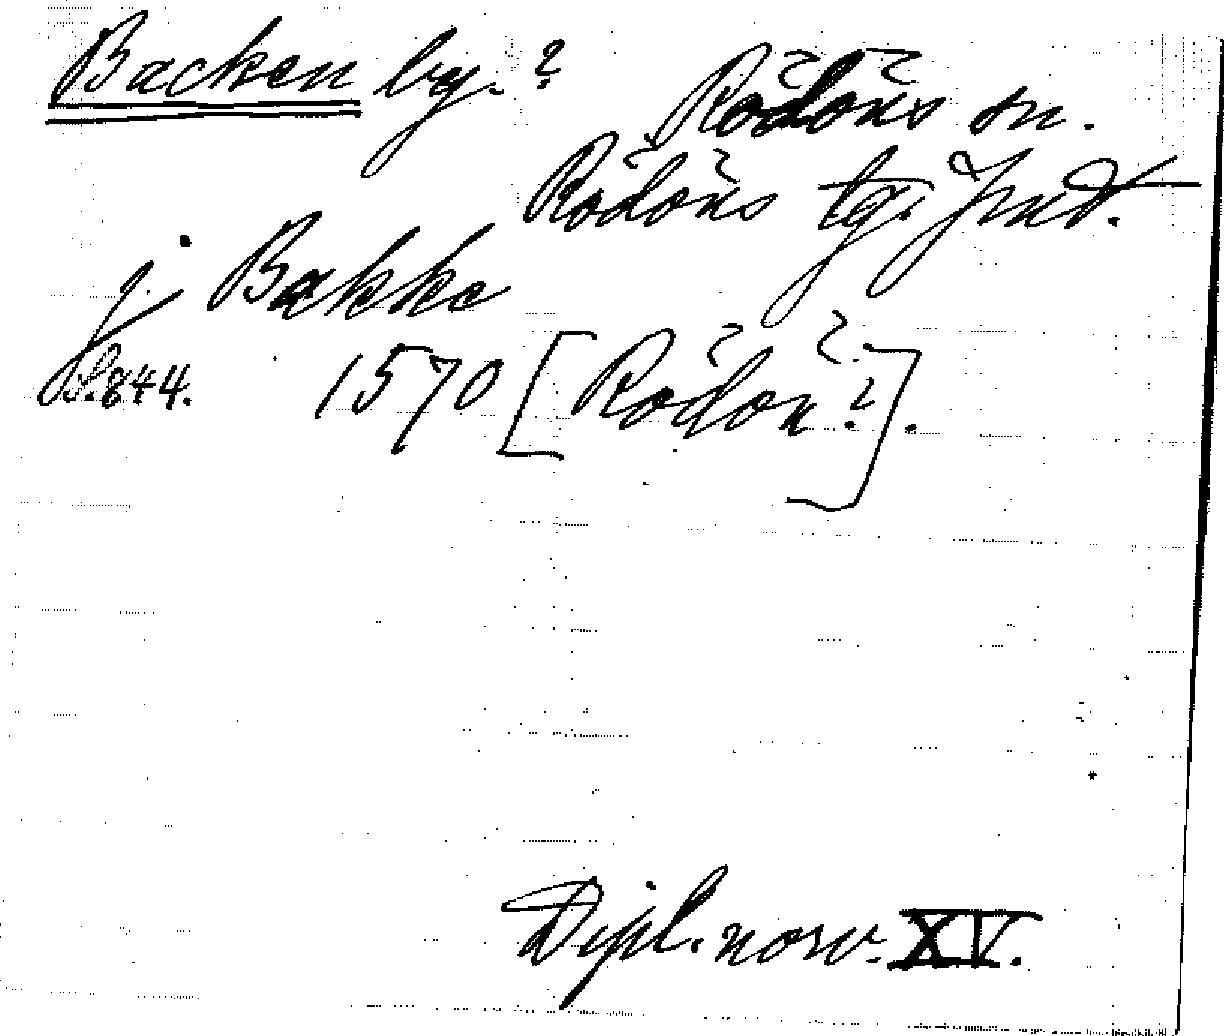 Backen by.?
Rödöns sn.
Rödöns tg. Jmt.
j Bakke
S. 844. 1570 [Rödön?].
Dipl. norv. XV.